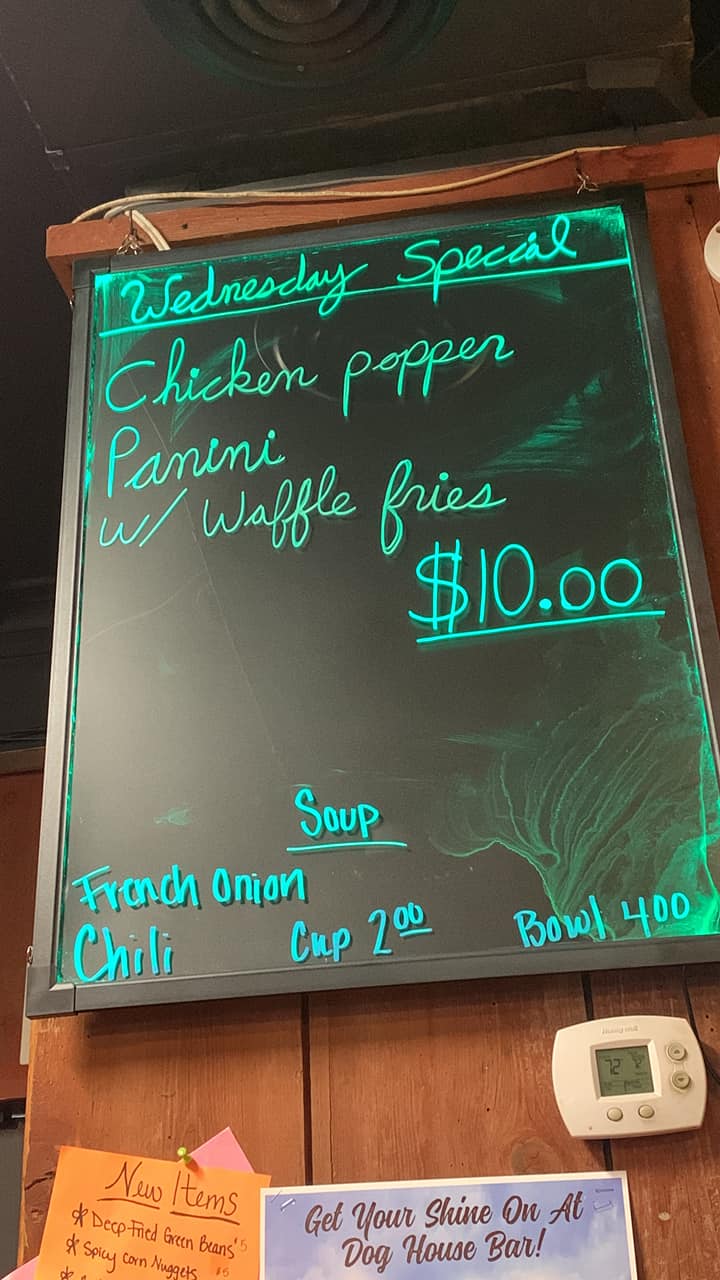 Wednesday Special
Chicken popper
Panini
w/ Waffle fries
$10.00
Soup
French Onion
Chili Cup 2.00 Bowl 400
Honeywell
72
New Items
* Deep-Fried Green Beans $5
* Spicy Corn Nuggets $5
Get Your Shine On At
Dog House Bar!